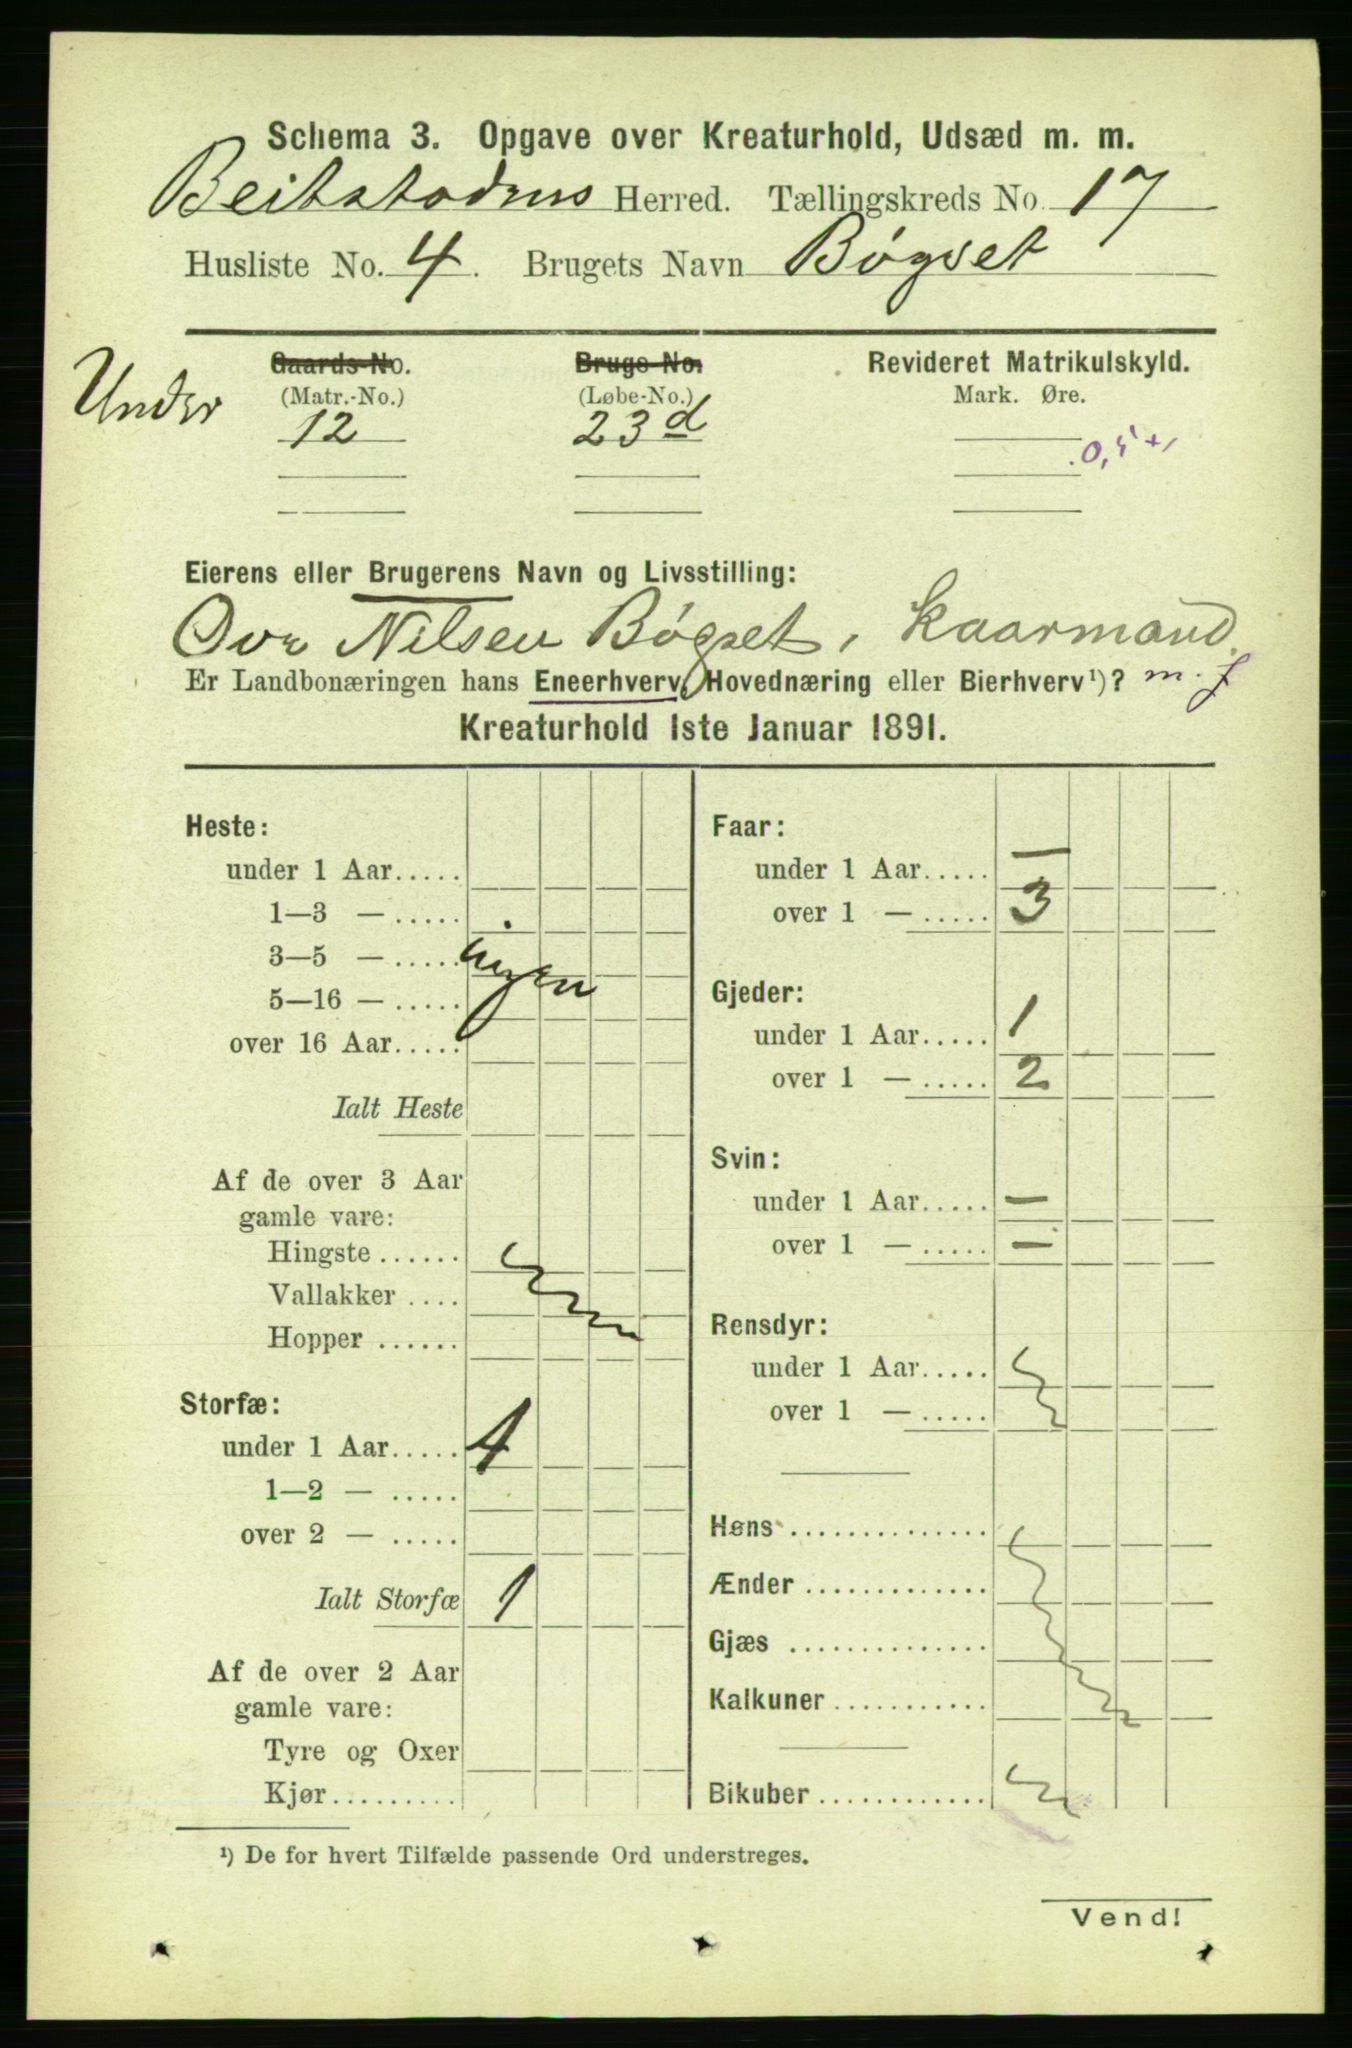 Schema 3. Opgave over Kreaturhold, Udsæd m. m.
Beitstadens Herred. Tællingskreds No. 17
Husliste No. 4. Brugets Navn Bøgset
Under
Gaards-No. Brugs-No. Revideret Matrikulskyld.
(Matr.-No.) (Løbe-No.) Mark. Øre.
12 23 d
Eierens eller Brugerens Navn og Livsstilling:
Ove Nilsen Bøgset, Kaarmand.
Er Landbonæringen hans Eneerhverv, Hovednæring eller Bierhverv¹)? m. f
Kreaturhold 1ste Januar 1891.
Heste:
under 1 Aar.....
1—3 — .....
3—5 — ..... ingen
5—16 — .....
over 16 Aar.....
Ialt Heste
Af de over 3 Aar
gamle vare:
Hingste ......
Vallakker ....
Hopper ......
Storfæ:
under 1 Aar.....
1—2 — .....
over 2 — .....
Ialt Storfæ 1
Af de over 2 Aar
gamle vare:
Tyre og Oxer
Kjør.........
Faar:
under 1 Aar..... —
over 1 — ..... 3
Gjeder:
under 1 Aar..... 1
over 1 — ..... 2
Svin:
under 1 Aar..... —
over 1 — ..... —
Rensdyr:
under 1 Aar.....
over 1 — .....
Høns ..............
Ænder .............
Gjæs ..............
Kalkuner...........
Bikuber............
¹) De for hvert Tilfælde passende Ord understreges.
Vend!